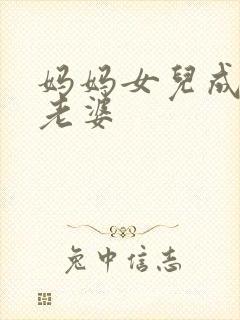 妈妈女兒成
老婆
兔中信志